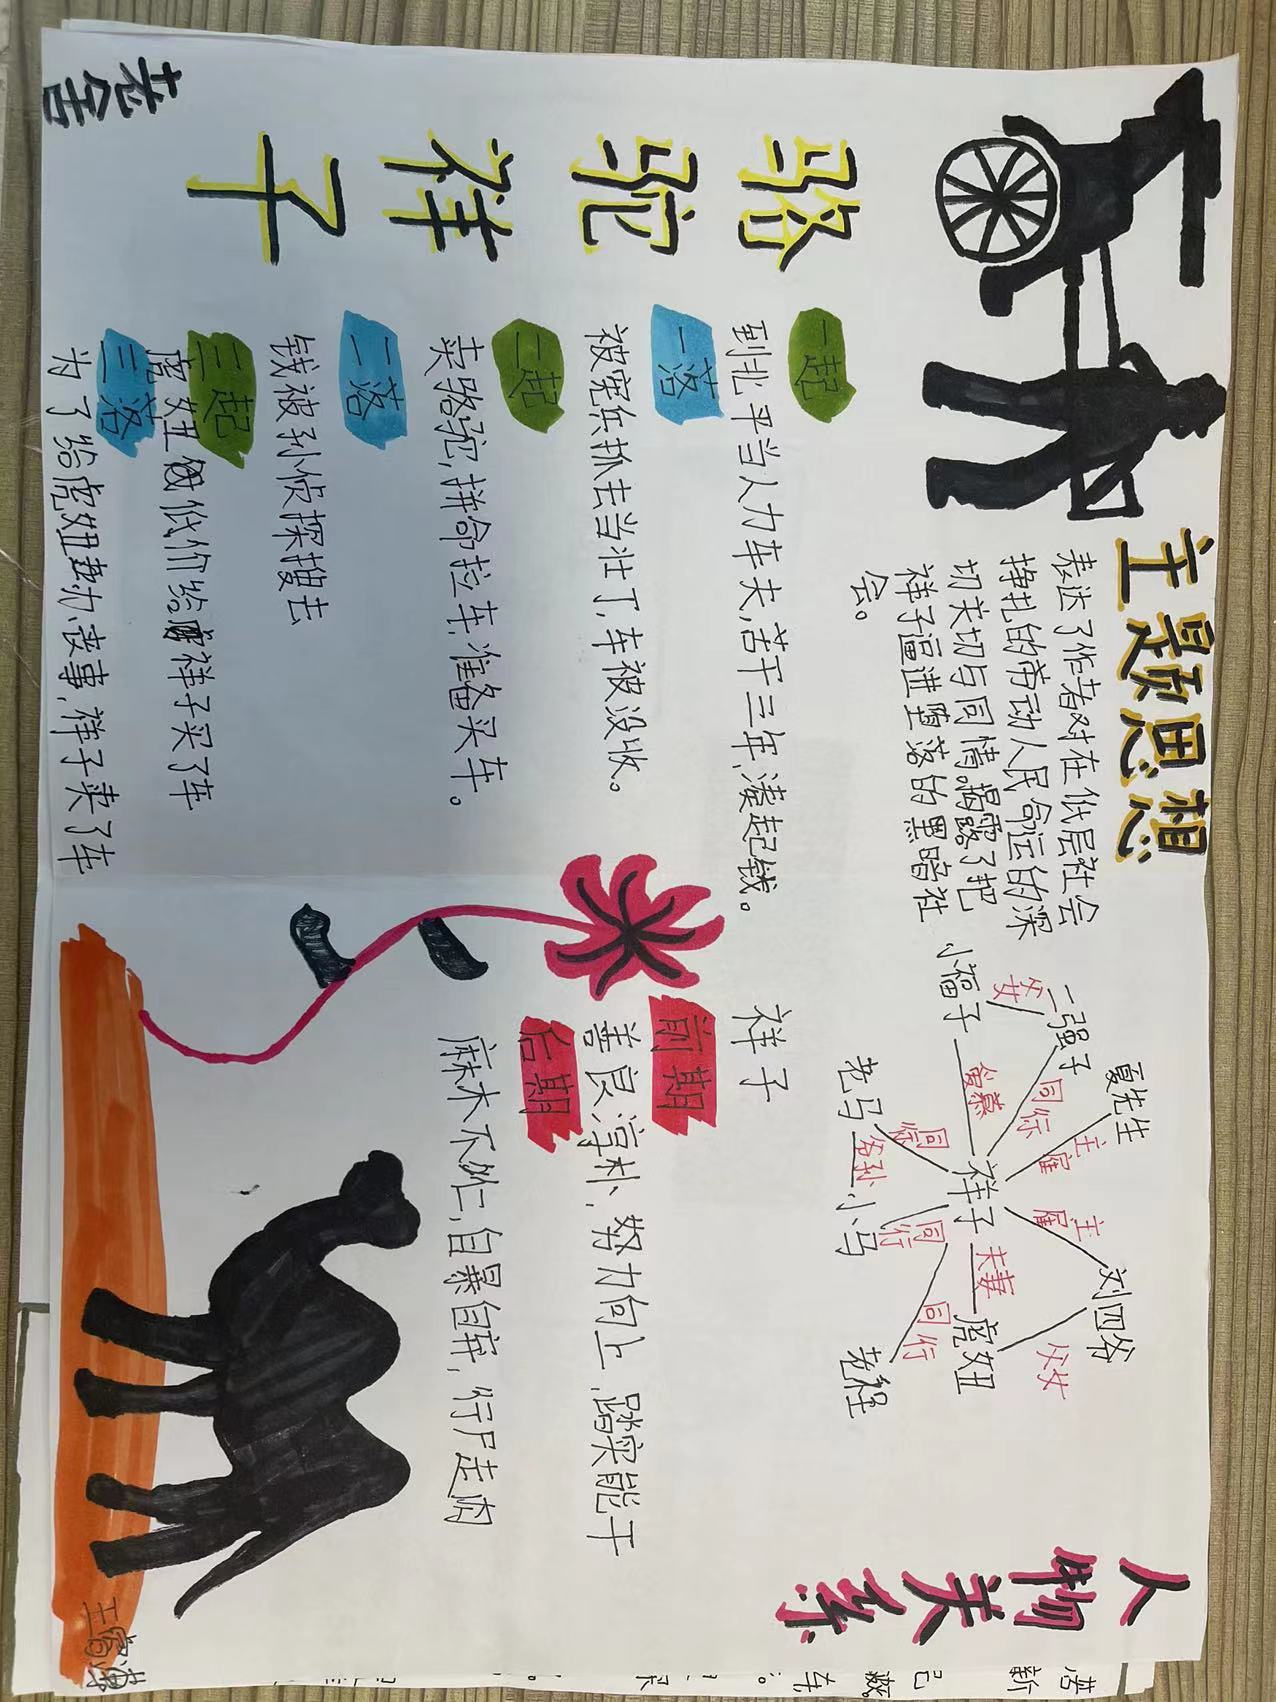 骆驼祥子
老舍
主题思想
表达了作者对在低层社会
挣扎的劳动人民命运的深
切关切与同情。揭露了把
祥子逼进堕落的黑暗社
会。
一起
到北平当人力车夫,苦干三年,凑起钱。
一落
被宪兵抓去当壮丁,车被没收。
二起
卖骆驼,拼命拉车,准备买车。
二落
钱被孙侦探搜去
三起
虎妞低价给祥子买了车
三落
为了给虎妞办丧事,祥子卖了车
人物关系
夏先生
二强子
小福子
父女
同行
主雇
主雇
刘四爷
爱慕
祥子
夫妻
虎妞
父女
老马
同行
爷孙
小马
同行
同行
老程
祥子
前期
善良淳朴、努力向上,踏实能干
后期
麻木不仁,自暴自弃,行尸走肉